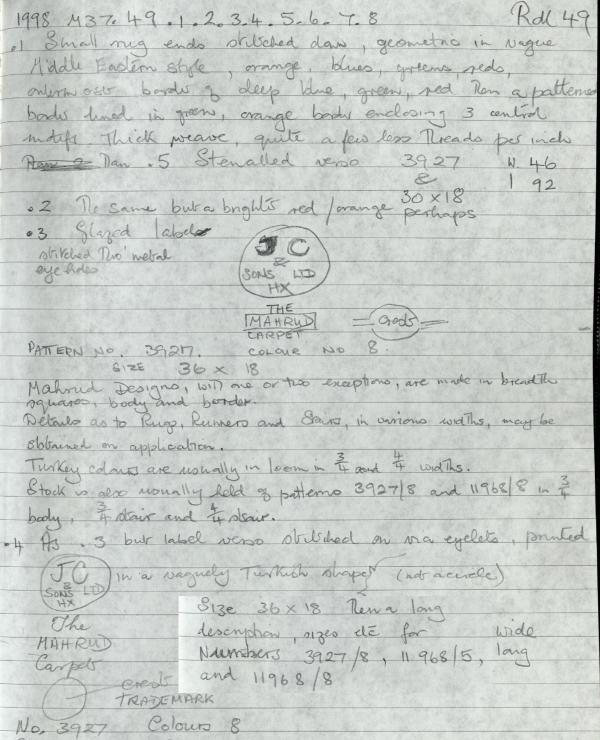 1998 M37.49.1.2.3.4.5.6.7.8 Rdl 49
.1 Small rug ends stitched down, geometric in vague
Middle Eastern style, orange, blues, greens, reds,
outermost border of deep blue, green, red then a patterned
border lined in green, orange border enclosing 3 central
motifs Thick weave, quite a few less threads per inch
than .5 Stencilled verso 3927 W 46
& l 92
30 x 18
.2 The same but a brighter red/orange perhaps
.3 Glazed label
stitched thro' metal
eye holes
JC
&
SONS LTD
HX
THE
MAHRUD
CARPET
Creds
PATTERN NO. 3927. COLOUR NO 8.
SIZE 36 x 18
Mahrud Designs, with one or two exceptions, are made in breadth
squares, body and border.
Details as to Rugs, Runners and Stairs, in various widths, may be
obtained on application.
Turkey colours are usually in loom in 3/4 and 4/4 widths.
Stock is also usually held of patterns 3927/8 and 11968/8 in 3/4
body, 3/4 stair and 4/4 stair.
.4 As .3 but label verso stitched on via eyelets, printed
in a vaguely Turkish shape (not a circle)
JC
&
SONS LTD
HX
The
MAHRUD
Carpet
Size 36 x 18 Then a long
description, sizes etc for wide
Numbers 3927/8, 11968/5, long
and 11968/8
creds
TRADEMARK
No. 3927 Colours 8